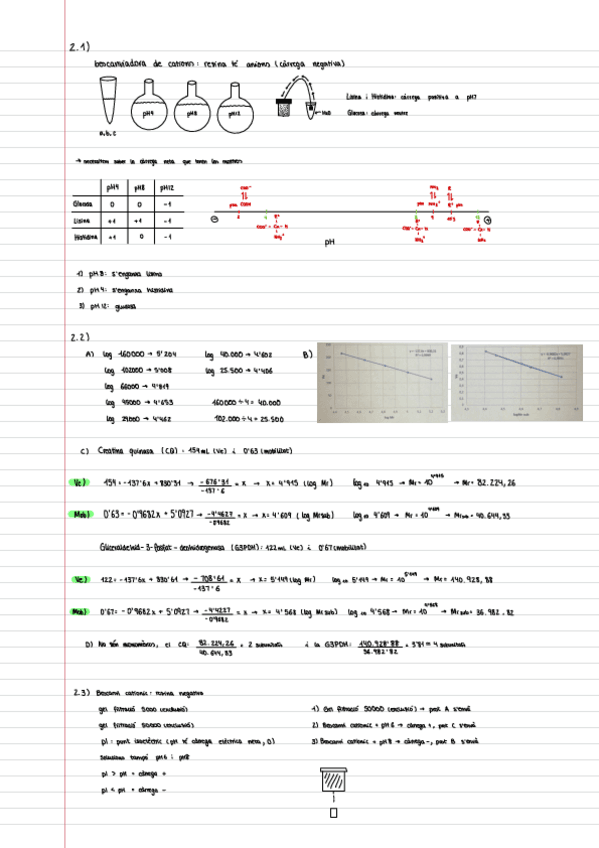 2.1)
bescanviadora de cations: resina té anions (càrrega negativa)
pH4 pH8 pH12
H2O
a, b, c
Lisina i Histidina: càrrega positiva a pH7
Glucosa: càrrega neutre
→ necessitem saber la càrrega neta que tenen les mostres
pH4 pH8 pH12
Glucosa 0 0 -1
Lisina +1 +1 -1
Histidina +1 0 -1
pH
1) pH 8: s'enganxa lisina
2) pH 4: s'enganxa histidina
3) pH 12: glucosa
2.2)
A) log 160000 → 5'204 log 40.000 → 4'602 B)
log 102000 → 5'008 log 25.500 → 4'406
log 66000 → 4'819
log 45000 → 4'653 160000 ÷ 4 = 40.000
log 29000 → 4'462 102.000 ÷ 4 = 25.500
C) Creatina quinasa (CQ) = 154 mL (Ve) i 0'63 (mobilitat)
Ve) 154 = -137'6x + 830'31 → -676'31 / -137'6 = x → x = 4'915 (log Mr) log 4'915 → Mr = 10^4'915 → Mr = 82.224,26
Mob) 0'63 = -0'9682x + 5'0927 → -4'4627 / -0'9682 = x → x = 4'609 (log Mrsub) log 4'609 → Mr = 10^4'609 → Mrsub = 40.644,33
Gliceraldehid-3-fosfat-deshidrogenasa (G3PDH): 122 mL (Ve) i 0'67 (mobilitat)
Ve) 122 = -137'6x + 830'61 → -708'61 / -137'6 = x → x = 5'149 (log Mr) log 5'149 → Mr = 10^5'149 → Mr = 140.928,88
Mob) 0'67 = -0'9682x + 5'0927 → -4'4227 / -0'9682 = x → x = 4'568 (log Mrsub) log 4'568 → Mr = 10^4'568 → Mrsub = 36.982,82
D) No són monomèrics, el CQ: 82.224,26 / 40.644,33 = 2 subunitats i la G3PDH: 140.928'88 / 36.982'82 = 3'81 = 4 subunitats
2.3) Bescanvi catiònic: resina negativa
gel filtració 5000 (exclusió)
gel filtració 50000 (exclusió)
pI: punt isoelèctric (pH té càrrega elèctrica neta, 0)
Solucions tampó pH6 i pH8
pI > pH = càrrega +
pI < pH = càrrega -
1) Gel filtració 50000 (exclusió) → prot A s'envà
2) Bescanvi catiònic + pH6 → càrrega +, prot C s'envà
3) Bescanvi catiònic + pH8 → càrrega -, prot B s'envà